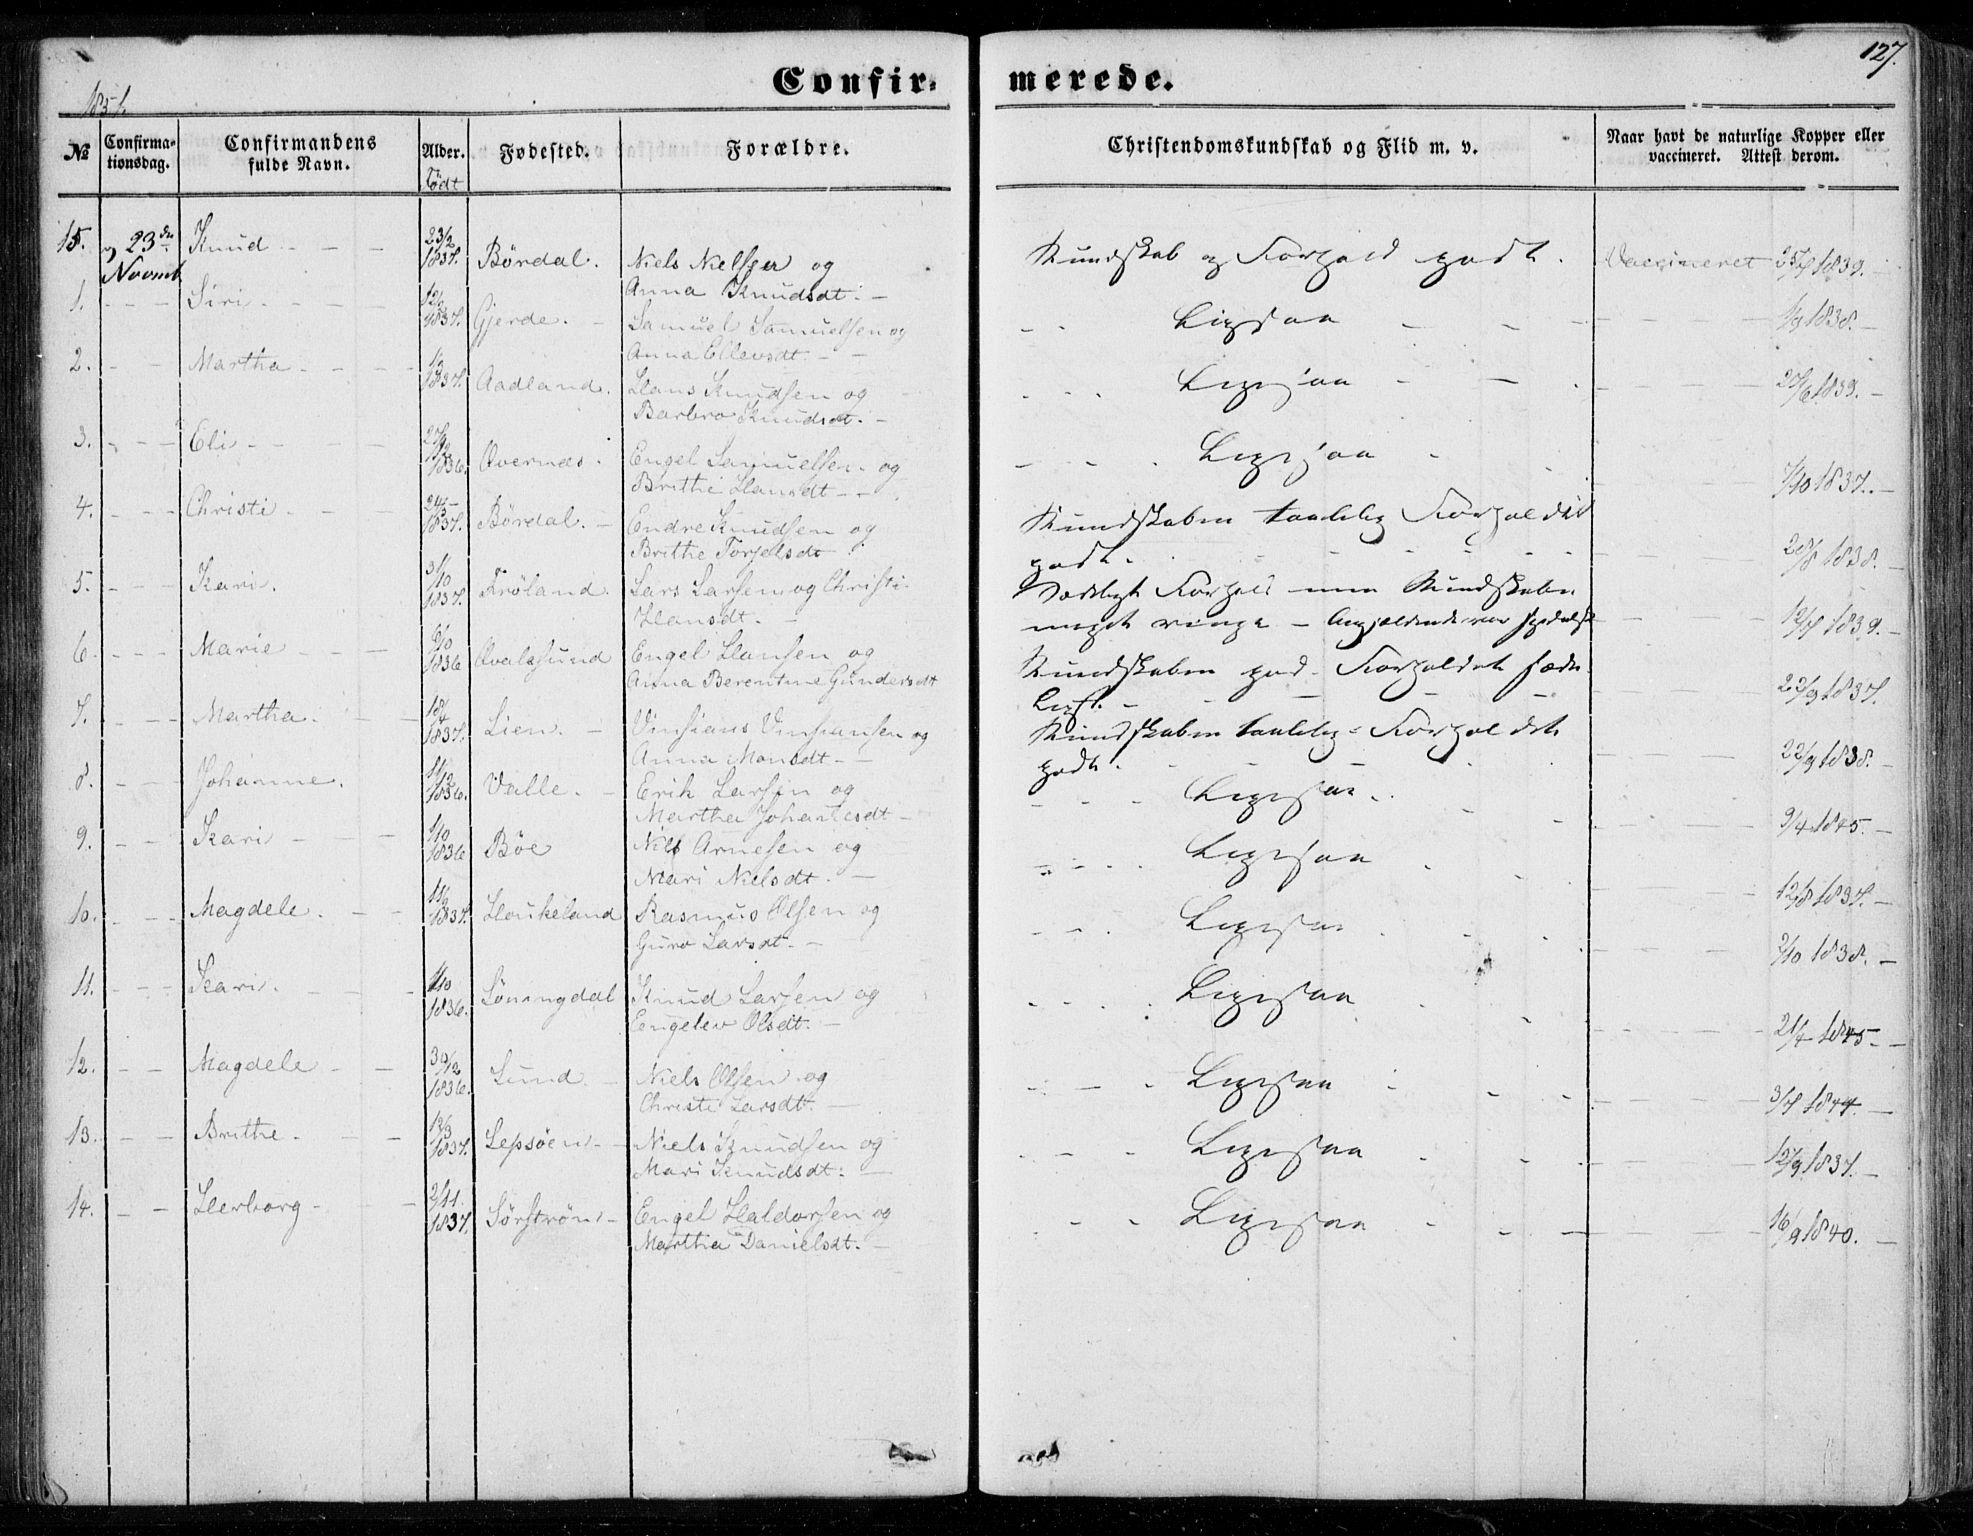 127.
Confirmerede.
1851.
№ Confirmationsdag. Confirmandens fulde Navn. Alder. Födt Fødested. Forældre. Christendomskundskab og Flid m. v. Naar havt de naturlige Kopper eller vaccineret. Attest derom.
15. 23de Novmb Knud - - - 23/2 1837. Bördal. Niels Nielsen og Anna Knudsdt. - Kundskab og Forhold godt. Vaccineret 1839.
1. - - - Siri - - - 1837. Gjerde. Samuel Samuelsen og Anna Ellevsdt. - Ligesaa 1838. -
2. - - Martha - - - 1837. Aadland. Hans Knudsen og Barbro Knudsdt. - Ligesaa 1839. -
3. - - - Eli - - - 1836. Övernæs. Engel Samuelsen og Brithe Hansdt - - Ligesaa 7/10 1837. -
4. - - - Christi - - - 1837. Bördal. - Endre Knudsen og Brithe Torjelsdt Kundskaben taalelig Forholdet godt. 1838. -
5. - - - Kari. 1837. Fröland. Lars Larsen og Christi Hansdt. - Sædeligt Forhold men Kundskaben meget ringe - 1839. -
6. - - - Marie - - - 1836 Qvalesund Engel Hansen og Anna Berentine Gundersdt Kundskaben god - Forholdet sædeligt. - 1837.
7. - - - Martha. 18/4 1837. Lien. - Vinsians Vinsiansen og Anna Monsdt - - Kundskaben taalelig - Forholdet godt. 22/9 1838. -
8. - - Johanne. 11/12 1836. Valle. - Erik Larsen og Martha Johannesdt - Ligesaa. 9/4 1845. -
9. - - Kari - - - 1/10 1836 Böe Niels Arnesen og Mari Nielsdt. - Ligesaa 12/8 1837. -
10. - - - Magdele. - - 1837. Houkeland Rasmus Olsen og Guro Larsdt. - Ligesaa 2/10 1838. -
11. - - - Kari. - - 1836. Löningdal Knud Larsen og Engelev Olsdt. - Ligesaa 21/4 1845 - -
12. - - Magdele - - 30/12 1836. Lund. - Niels Olsen og Christi Larsdt. - Ligesaa 1844. -
13. - - Brithe. - - 1837. Lepsöen - Niels Knudsen og Mari Knudsdt. - Ligesaa 1837. -
14. - - Herborg - - 2/11 1837. Sörström - Engel Haldorsen og Martha Danielsdt. - Ligesaa 16/9 1840. -